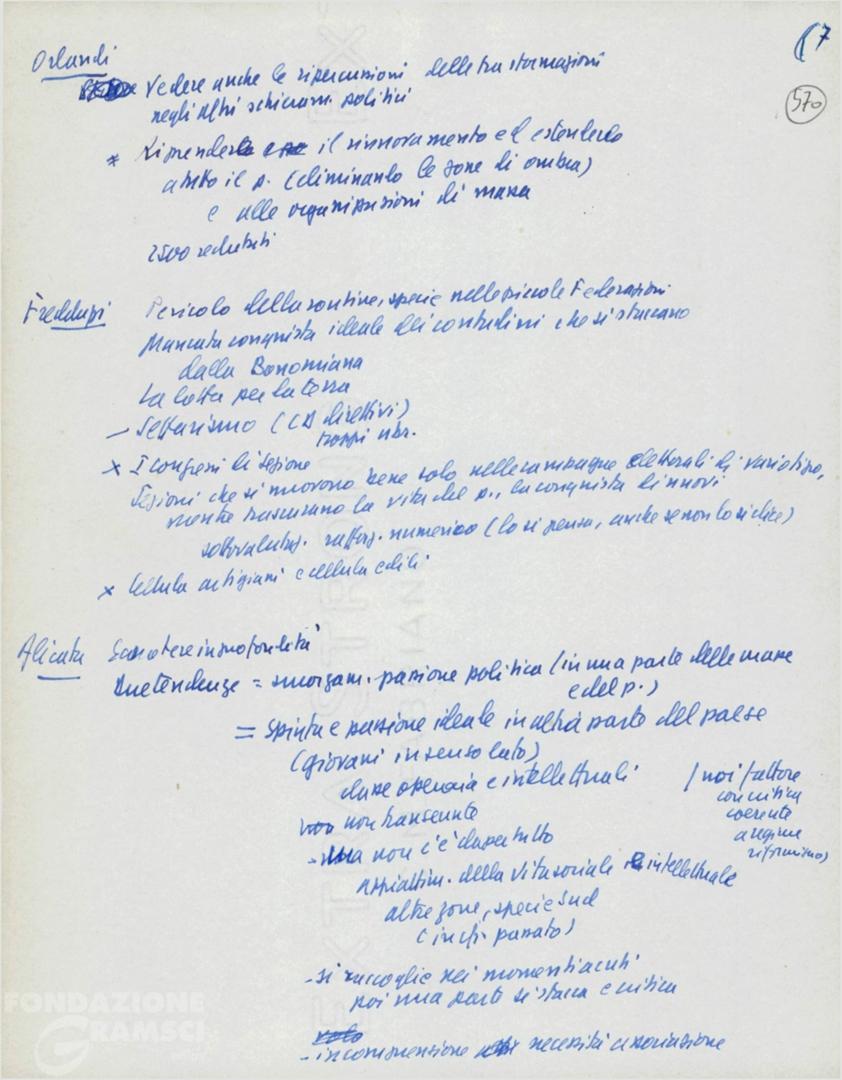 7
570
Orlandi
Vedere anche le ripercussioni delle trasformazioni
negli altri schieram. politici
* Riprendere il rinnovamento ed estenderlo
a tutto il p. (eliminando le zone di ombra)
e alle organizzazioni di massa
2500 reclutati
Freddupi Pericolo della routine, specie nelle piccole Federazioni
Mancata conquista ideale dei contadini che si staccano
dalla Bonomiana
La lotta per la terra
- Settarismo (CD direttivi)
troppi
x I congressi di sezione
Sezioni che si muovono bene solo nelle campagne elettorali di vario tipo,
mentre trascurano la vita del p., la conquista di nuovi
sottovalutaz. rafforz. numerico (lo si pensa, anche se non lo si dice)
x Cellula artigiani e cellula edili
Alicata Scuotere in profondità
Due tendenze = smorzam. passione politica (in una parte delle masse
e del p.)
= spinta e passione ideale in altra parte del paese
(giovani in senso lato)
classe operaia e intellettuali
(noi fattore
con critica
coerente
a regime
riformismo)
non transeunte
- ma non c'è dappertutto
appiattim. della vita sociale e intellettuale
altre zone, specie Sud
(in cfr. passato)
- si raccoglie nei momenti acuti
poi una parte si stacca e critica
- incomprensione necessità associazione
FONDAZIONE
GRAMSCI
EXTRA STRONG
FABRIANO